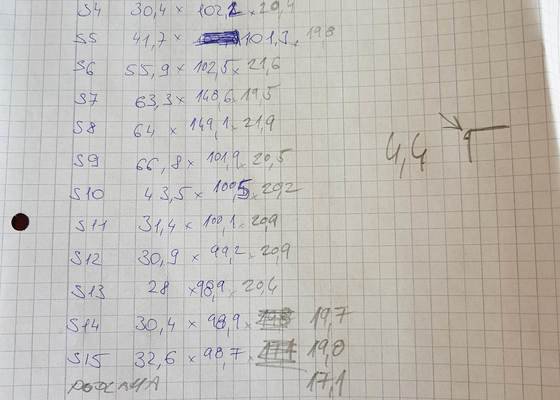 S4 30,4 × 102,2 × 20,4
S5 41,7 × 101,3 × 19,8
S6 55,9 × 102,5 × 21,6
S7 63,3 × 148,6 × 19,5
S8 64 × 149,1 × 21,9
4,4
S9 66,8 × 101,9 × 20,5
S10 43,5 × 100,5 × 20,2
S11 31,4 × 100,1 × 20,9
S12 30,9 × 99,2 × 20,9
S13 28 × 98,9 × 20,4
S14 30,4 × 98,9 × 19,7
S15 32,6 × 98,7 × 19,0
17,1